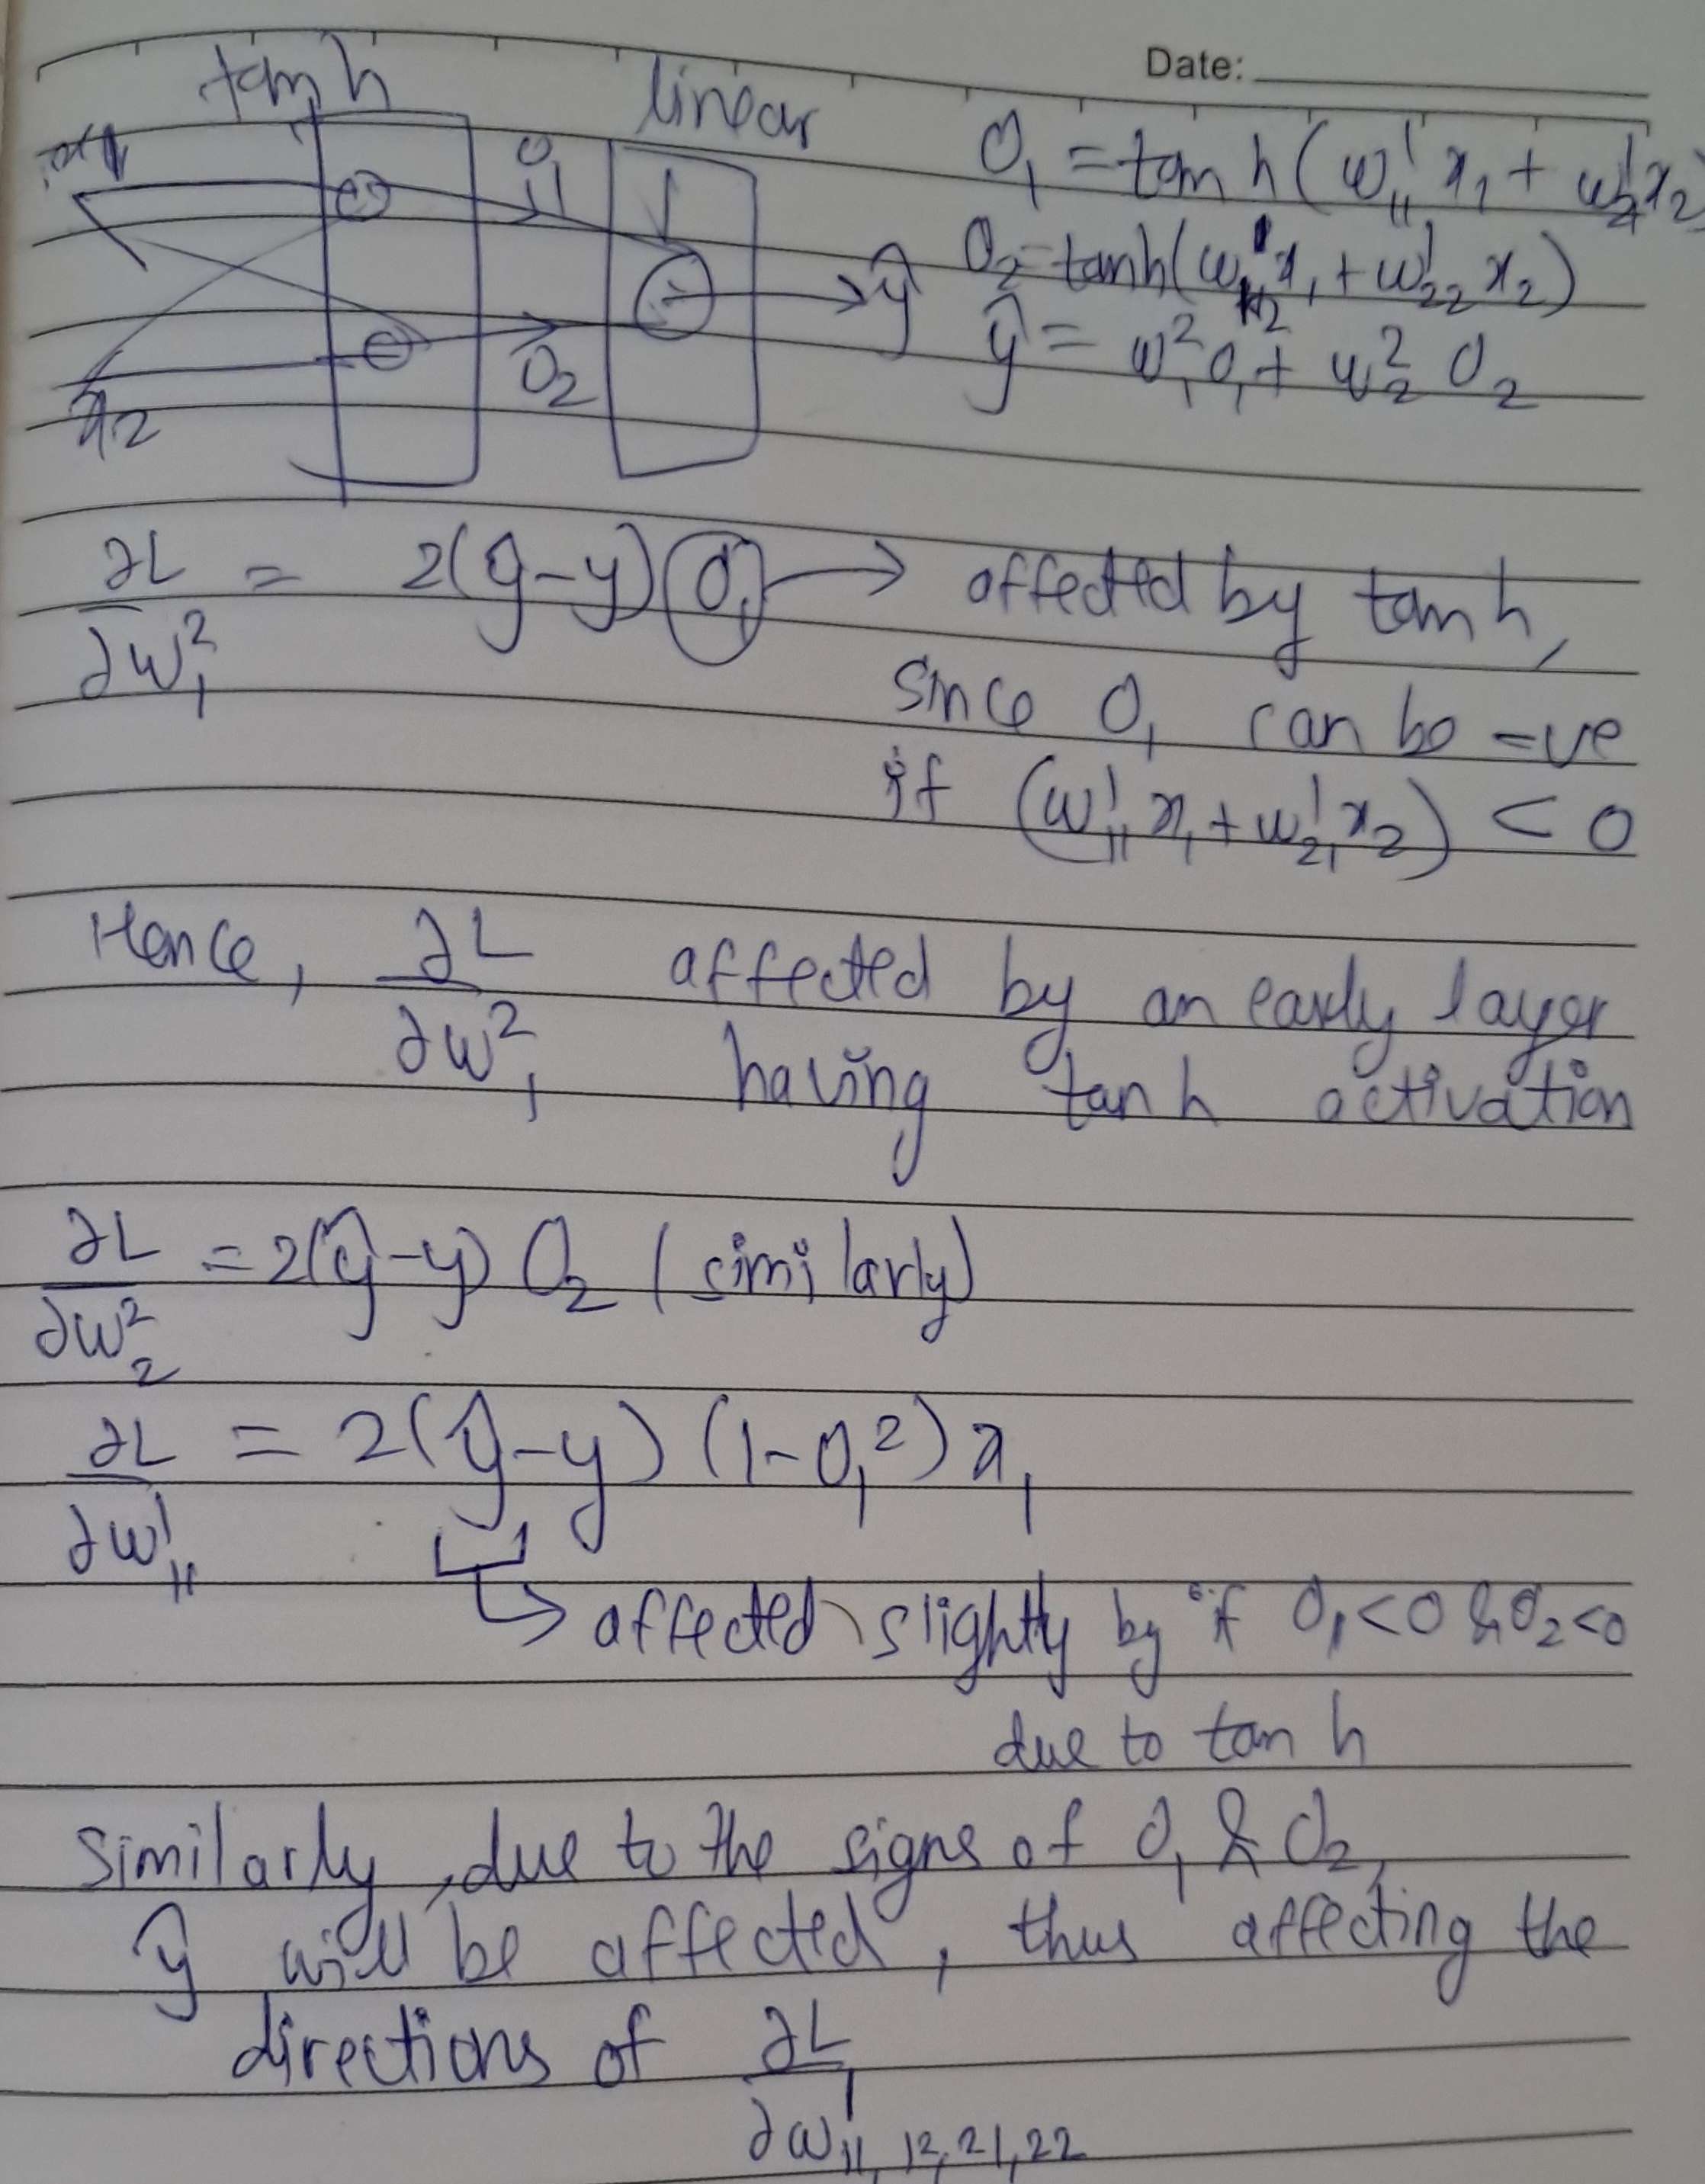 Date:
tanh linear
O₁ = tanh(w¹₁₁x₁ + w¹₂₁x₂)
O₁
O₂ = tanh(w¹₁₂x₁ + w¹₂₂x₂)
ŷ
ŷ = w²₁O₁ + w²₂O₂
O₂
x₂
∂L/∂w²₁ = 2(ŷ-y)O₁ → affected by tanh,
since O₁ can be -ve
if (w¹₁₁x₁ + w¹₂₁x₂) < 0
Hence, ∂L/∂w²₁ affected by an early layer
having tanh activation
∂L/∂w²₂ = 2(ŷ-y) O₂ (similarly)
∂L/∂w¹₁₁ = 2(ŷ-y)(1-O₁²)x₁
↳ affected slightly by if O₁<0 & O₂<0
due to tanh
Similarly, due to the signs of O₁ & O₂,
ŷ will be affected, thus affecting the
directions of ∂L/∂w¹₁₁,₁₂,₂₁,₂₂